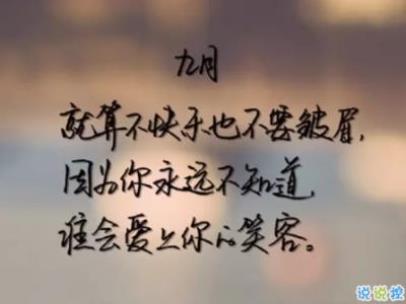 九月
就算不快乐也不要皱眉,
因为你永远不知道,
谁会爱上你的笑容。
说说控